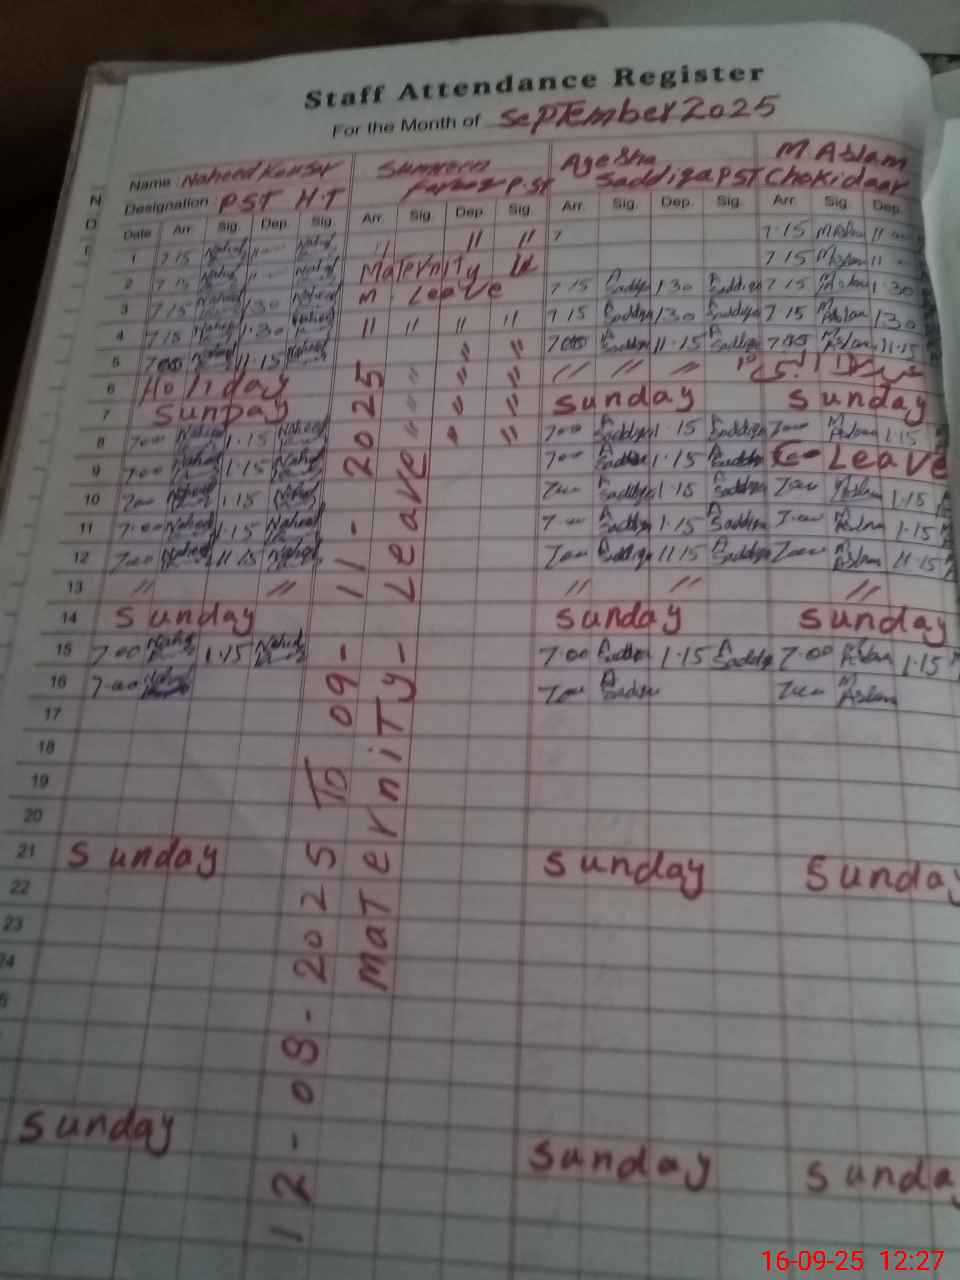 Staff Attendance Register
For the Month of September 2025
Name Naheed Kousar Sumreen Ayesha Saddiqa M Aslam
Designation PST H.T P.ST PST Chokidaar
Date Arr. Sig. Dep. Sig. Arr. Sig. Dep. Sig Arr. Sig. Dep. Sig. Arr. Sig. Dep.
1 7 15 Naheed " Naheed " " " 7 7.15 M Aslam "
2 7 15 Naheed " Naheed Maternity 7 15 M Aslam "
3 7 15 Naheed 1 30 Naheed M Leave 7 15 A Saddiqa 1 30 A Saddiqa 7 15 M Aslam 1.30
4 7 15 Naheed 1.30 Naheed " " " " 7 15 A Saddiqa 1 30 A Saddiqa 7 15 M Aslam 1 30
5 700 Naheed 11.15 Naheed " " 700 A Saddiqa 11.15 A Saddiqa M Aslam 11.15
6 Holiday " " " " " "
7 Sunday " " " Sunday Sunday
8 700 Naheed 1.15 Naheed " " " 700 A Saddiqa 1.15 A Saddiqa 700 M Aslam 1.15
9 700 Naheed 1.15 Naheed 700 A Saddiqa 1.15 A Saddiqa C- Leave
10 700 Naheed 1.15 Naheed 700 A Saddiqa 1.15 A Saddiqa 700 M Aslam 1.15
11 7.00 Naheed 1.15 Naheed 7.00 A Saddiqa 1.15 A Saddiqa 7.00 M Aslam 1.15
12 700 Naheed 11 15 Naheed 700 A Saddiqa 11 15 A Saddiqa 700 M Aslam 11.15
13 " " " " "
14 Sunday Sunday Sunday
15 7.00 Naheed 1.15 Naheed 7.00 A Saddiqa 1.15 A Saddiqa 7.00 M Aslam 1.15
16 7.00 Naheed 700 A Saddiqa 700 M Aslam
17
18
19
20
21 Sunday Sunday Sunday
22
23
24
Sunday Sunday Sunday
12-08-2025 To 09-11-2025
Maternity-Leave
16-09-25 12:27